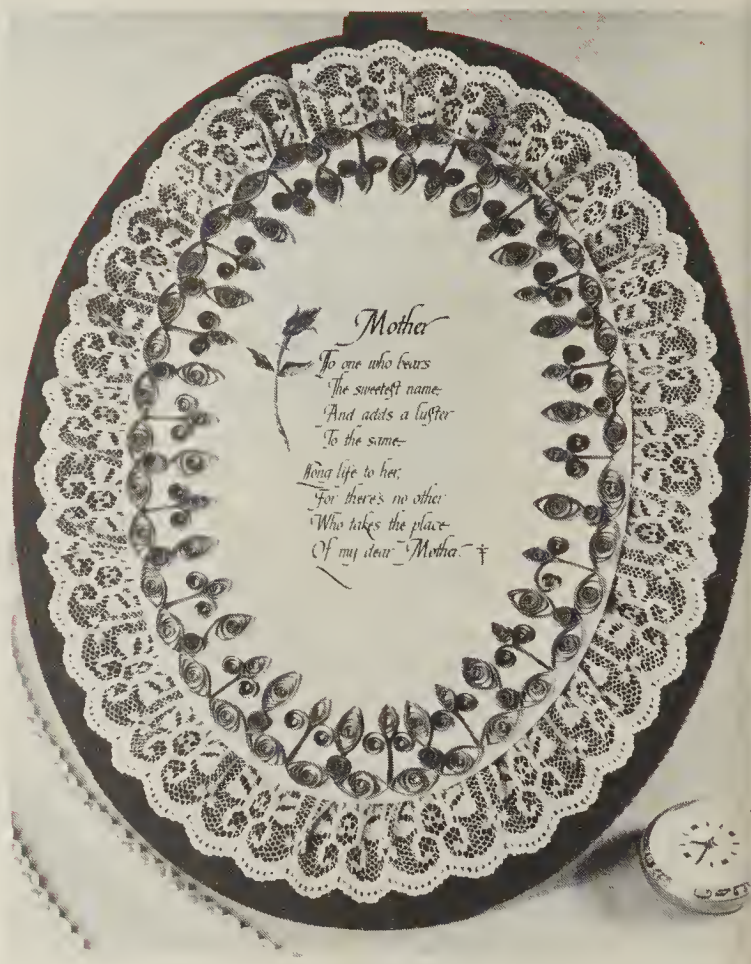 Mother
To one who bears
The sweetest name,
And adds a luster
To the same
Long life to her,
For there's no other
Who takes the place
Of my dear Mother.